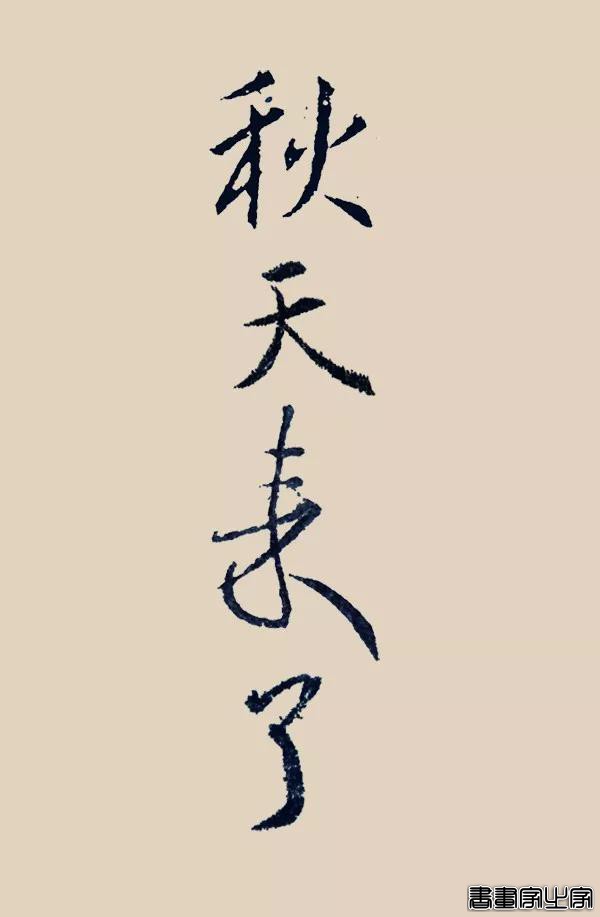 秋天来了
書畫家之家